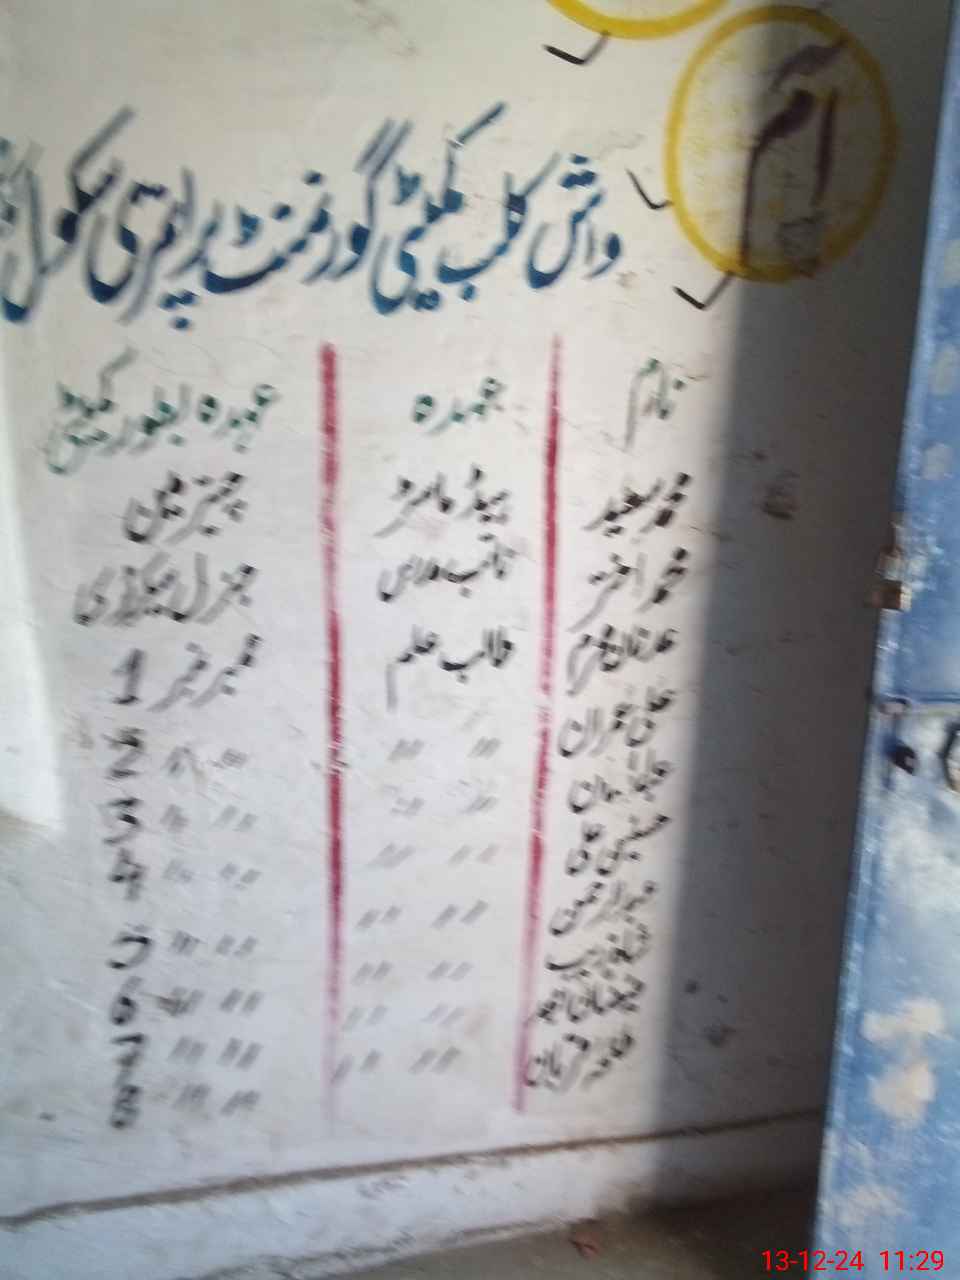 آم
واش کلب کمیٹی گورنمنٹ پرائمری سکول
نام عہدہ عہدہ بطور کمیٹی
محمد سعید ہیڈ ماسٹر چیئر مین
محمد اختر نائب مدرس جنرل سیکرٹری
طالب علم ممبر نمبر 1
علی عمران " " " " 2
" " " " 3
علی " " " " 4
عبدالرحمن " " " " 5
شاہ زیب " " " " 6
فیضان احمد " " " " 7
قربان " " " " 8
13-12-24 11:29